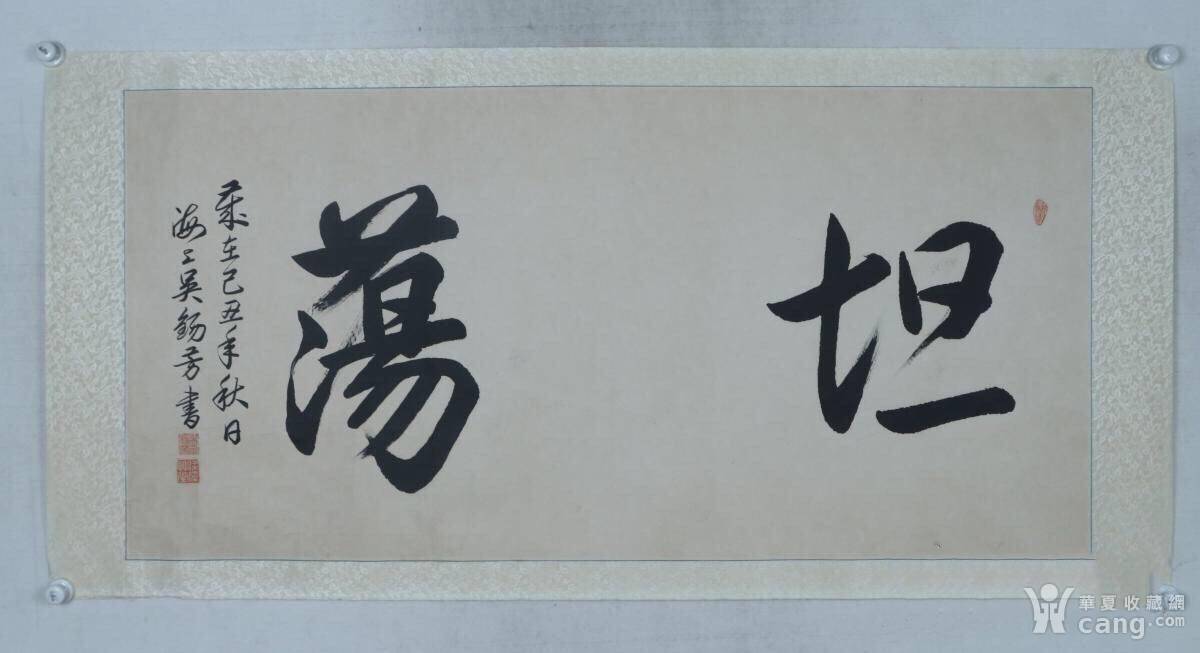 坦蕩
歲在己丑年秋日
海上吳錫芳書
華夏收藏網
cang.com